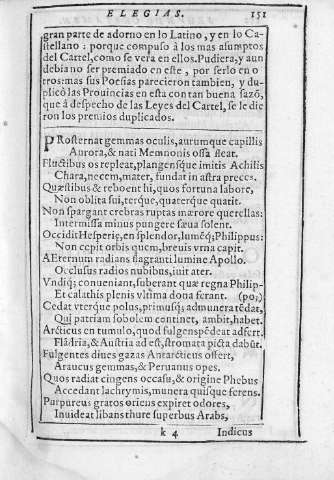 ELEGIAS. 151
gran parte de adorno en lo Latino, y en lo Ca-
stellano: porque compuso à los mas asumptos
del Cartel, como se vera en ellos. Pudiera, y aun
debiano ser premiado en este, por serlo en o-
tros: mas sus Poesias parecieron tambien, y du-
plicò las Prouincias en esta con tan buena sazõ,
que â despecho de las Leyes del Cartel, se le die
ron los premios duplicados.
PRosternat gemmas oculis, aurumque capillis
Aurora, & nati Memnonis ossa fleat.
Fluctibus os repleat, plangensque imitis Achilis
Chara, necem, mater, fundat in astra preces.
Quæstibus & reboent hi, quos fortuna labore,
Non oblita sui, terque, quaterque quatit.
Non spargant crebras ruptas mærore querellas:
Intermissa minus pungere sæua solent.
Occidit Hesperię, en splendor, lumẽq; Philippus:
Non cepit orbis quem, breuis vrna capit.
AEternum radians flagranti lumine Apollo.
Occlusus radios nubibus, iuit ater.
Vndiq; conueniant, fuberant quæ regna Philip-
Et calathis plenis vltima dona ferant. (po,)
Cedat vterque polus, primusq; ad munera tẽdat,
Qui patriam sobolem continet, ambit, habet.
Arcticus en tumulo, quod fulgens pẽdeat adfert.
Flãdria, & Austria ad est, stromata picta dabũt.
Fulgentes diues gazas Antarcticus offert,
Araucus gemmas, & Peruanus opes.
Quos radiat cingens occasu, & origine Phebus
Accedant lachrymis, munera quisque ferens.
Purpureus gratos oriens expiret odores,
Inuideat libans thure superbus Arabs,
k 4 Indicus